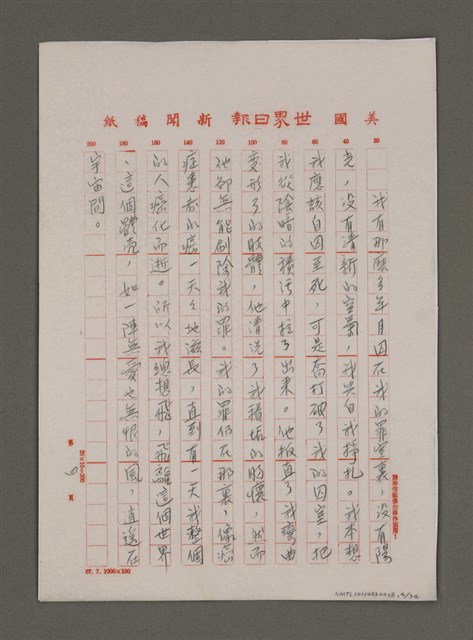 美國世界日報新聞稿紙
20
40
60
80
100
120
140
160
180
200
我有那麼多年月囚在我的罪室裏，沒有陽
光，沒有清新的空氣，我只白我掙扎。我本想
我應該自囚至死，可是否打破了我的囚室，把
我從陰暗的積污中拉了出來。他扳直了我彎曲
變形了的肢體，他清洗了我積垢的胸懷，然而
他卻無能剔除我的罪。我的罪仍在那裏，像癌
症患者的癌一天久地滋長，直到有一天我整個
的人癌化而逝。所以我總想飛，飛離這個世界
、這個體壳，如一陣無愛也無恨的風，直遙在
宇宙間。
第 6 頁
20×10=200
67.7.1000×100